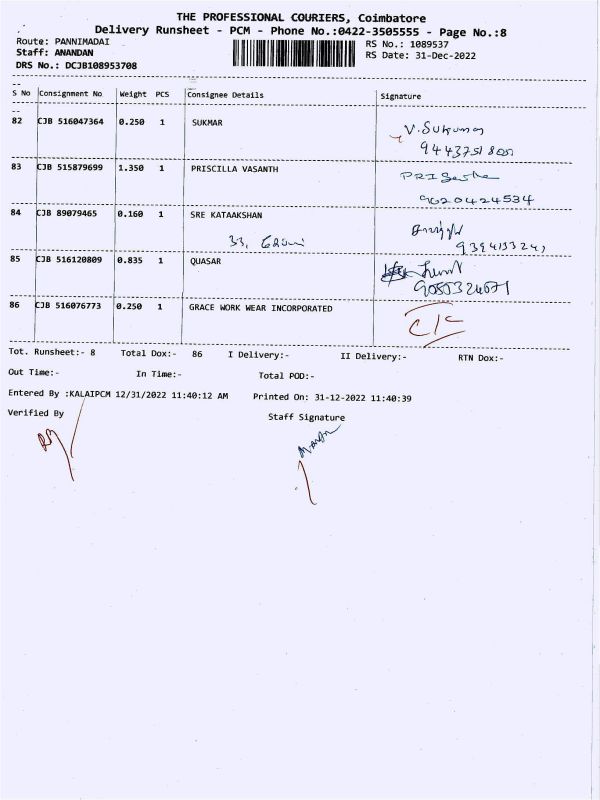 THE PROFESSIONAL COURIERS, Coimbatore
Delivery Runsheet - PCM - Phone No.:0422-3505555 - Page No.:8
Route: PANNIMADAI RS No.: 1089537
Staff: ANANDAN RS Date: 31-Dec-2022
DRS No.: DCJB108953708
S No Consignment No Weight PCS Consignee Details Signature
82 CJB 516047364 0.250 1 SUKMAR V. Sukumar
83 CJB 515879699 1.350 1 PRISCILLA VASANTH
9620424534
84 CJB 89079465 0.160 1 SRE KATAAKSHAN
33,
85 CJB 516120809 0.835 1 QUASAR
86 CJB 516076773 0.250 1 GRACE WORK WEAR INCORPORATED C/C
Tot. Runsheet:- 8 Total Dox:- 86 I Delivery:- II Delivery:- RTN Dox:-
Out Time:- In Time:- Total POD:-
Entered By :KALAIPCM 12/31/2022 11:40:12 AM Printed On: 31-12-2022 11:40:39
Verified By Staff Signature